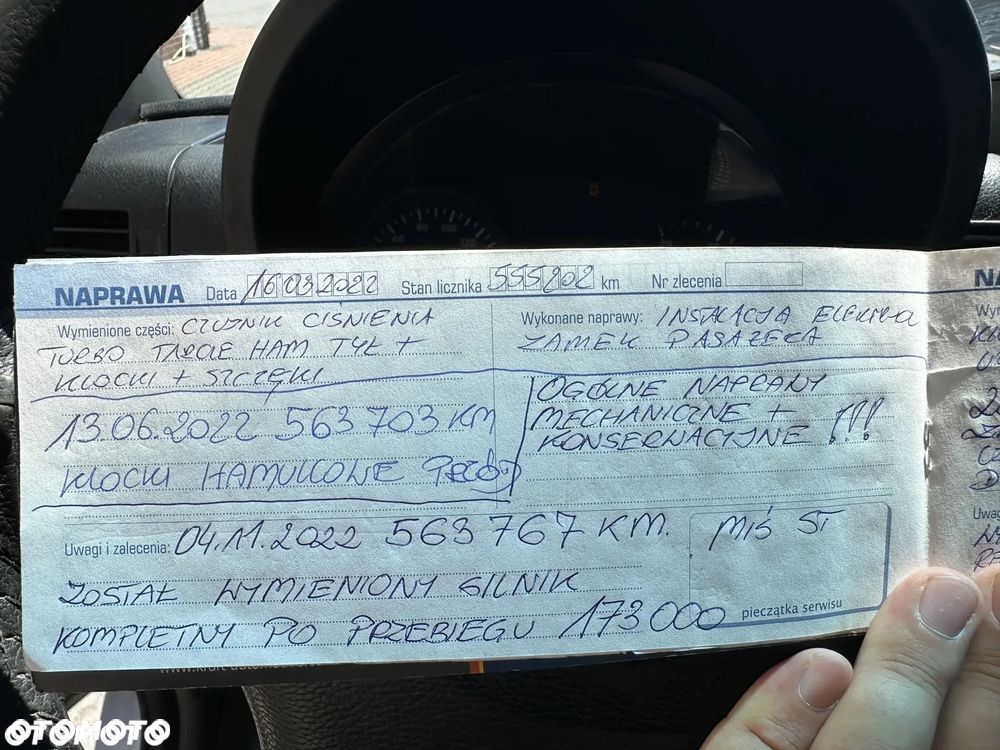 NAPRAWA Data 16 03 2022 Stan licznika 555202 km Nr zlecenia
Wymienione części: CZUJNIK CIŚNIENIA
TURBO TARCIE HAM TYŁ +
KLOCKI + SZCZĘKI
Wykonane naprawy: INSTALACJA ELEKTR
ZAMEK PASAŻERA
13.06.2022 563 703 KM
KLOCKI HAMULCOWE PRZÓD
OGÓLNE NAPRAWY
MECHANICZNE +
KONSERWACYJNE !!!
Uwagi i zalecenia: 04.11.2022 563 767 KM.
ZOSTAŁ WYMIENIONY SILNIK
KOMPLETNY PO PRZEBIEGU 173 000
MIŚ ST
pieczątka serwisu
OTOMOTO